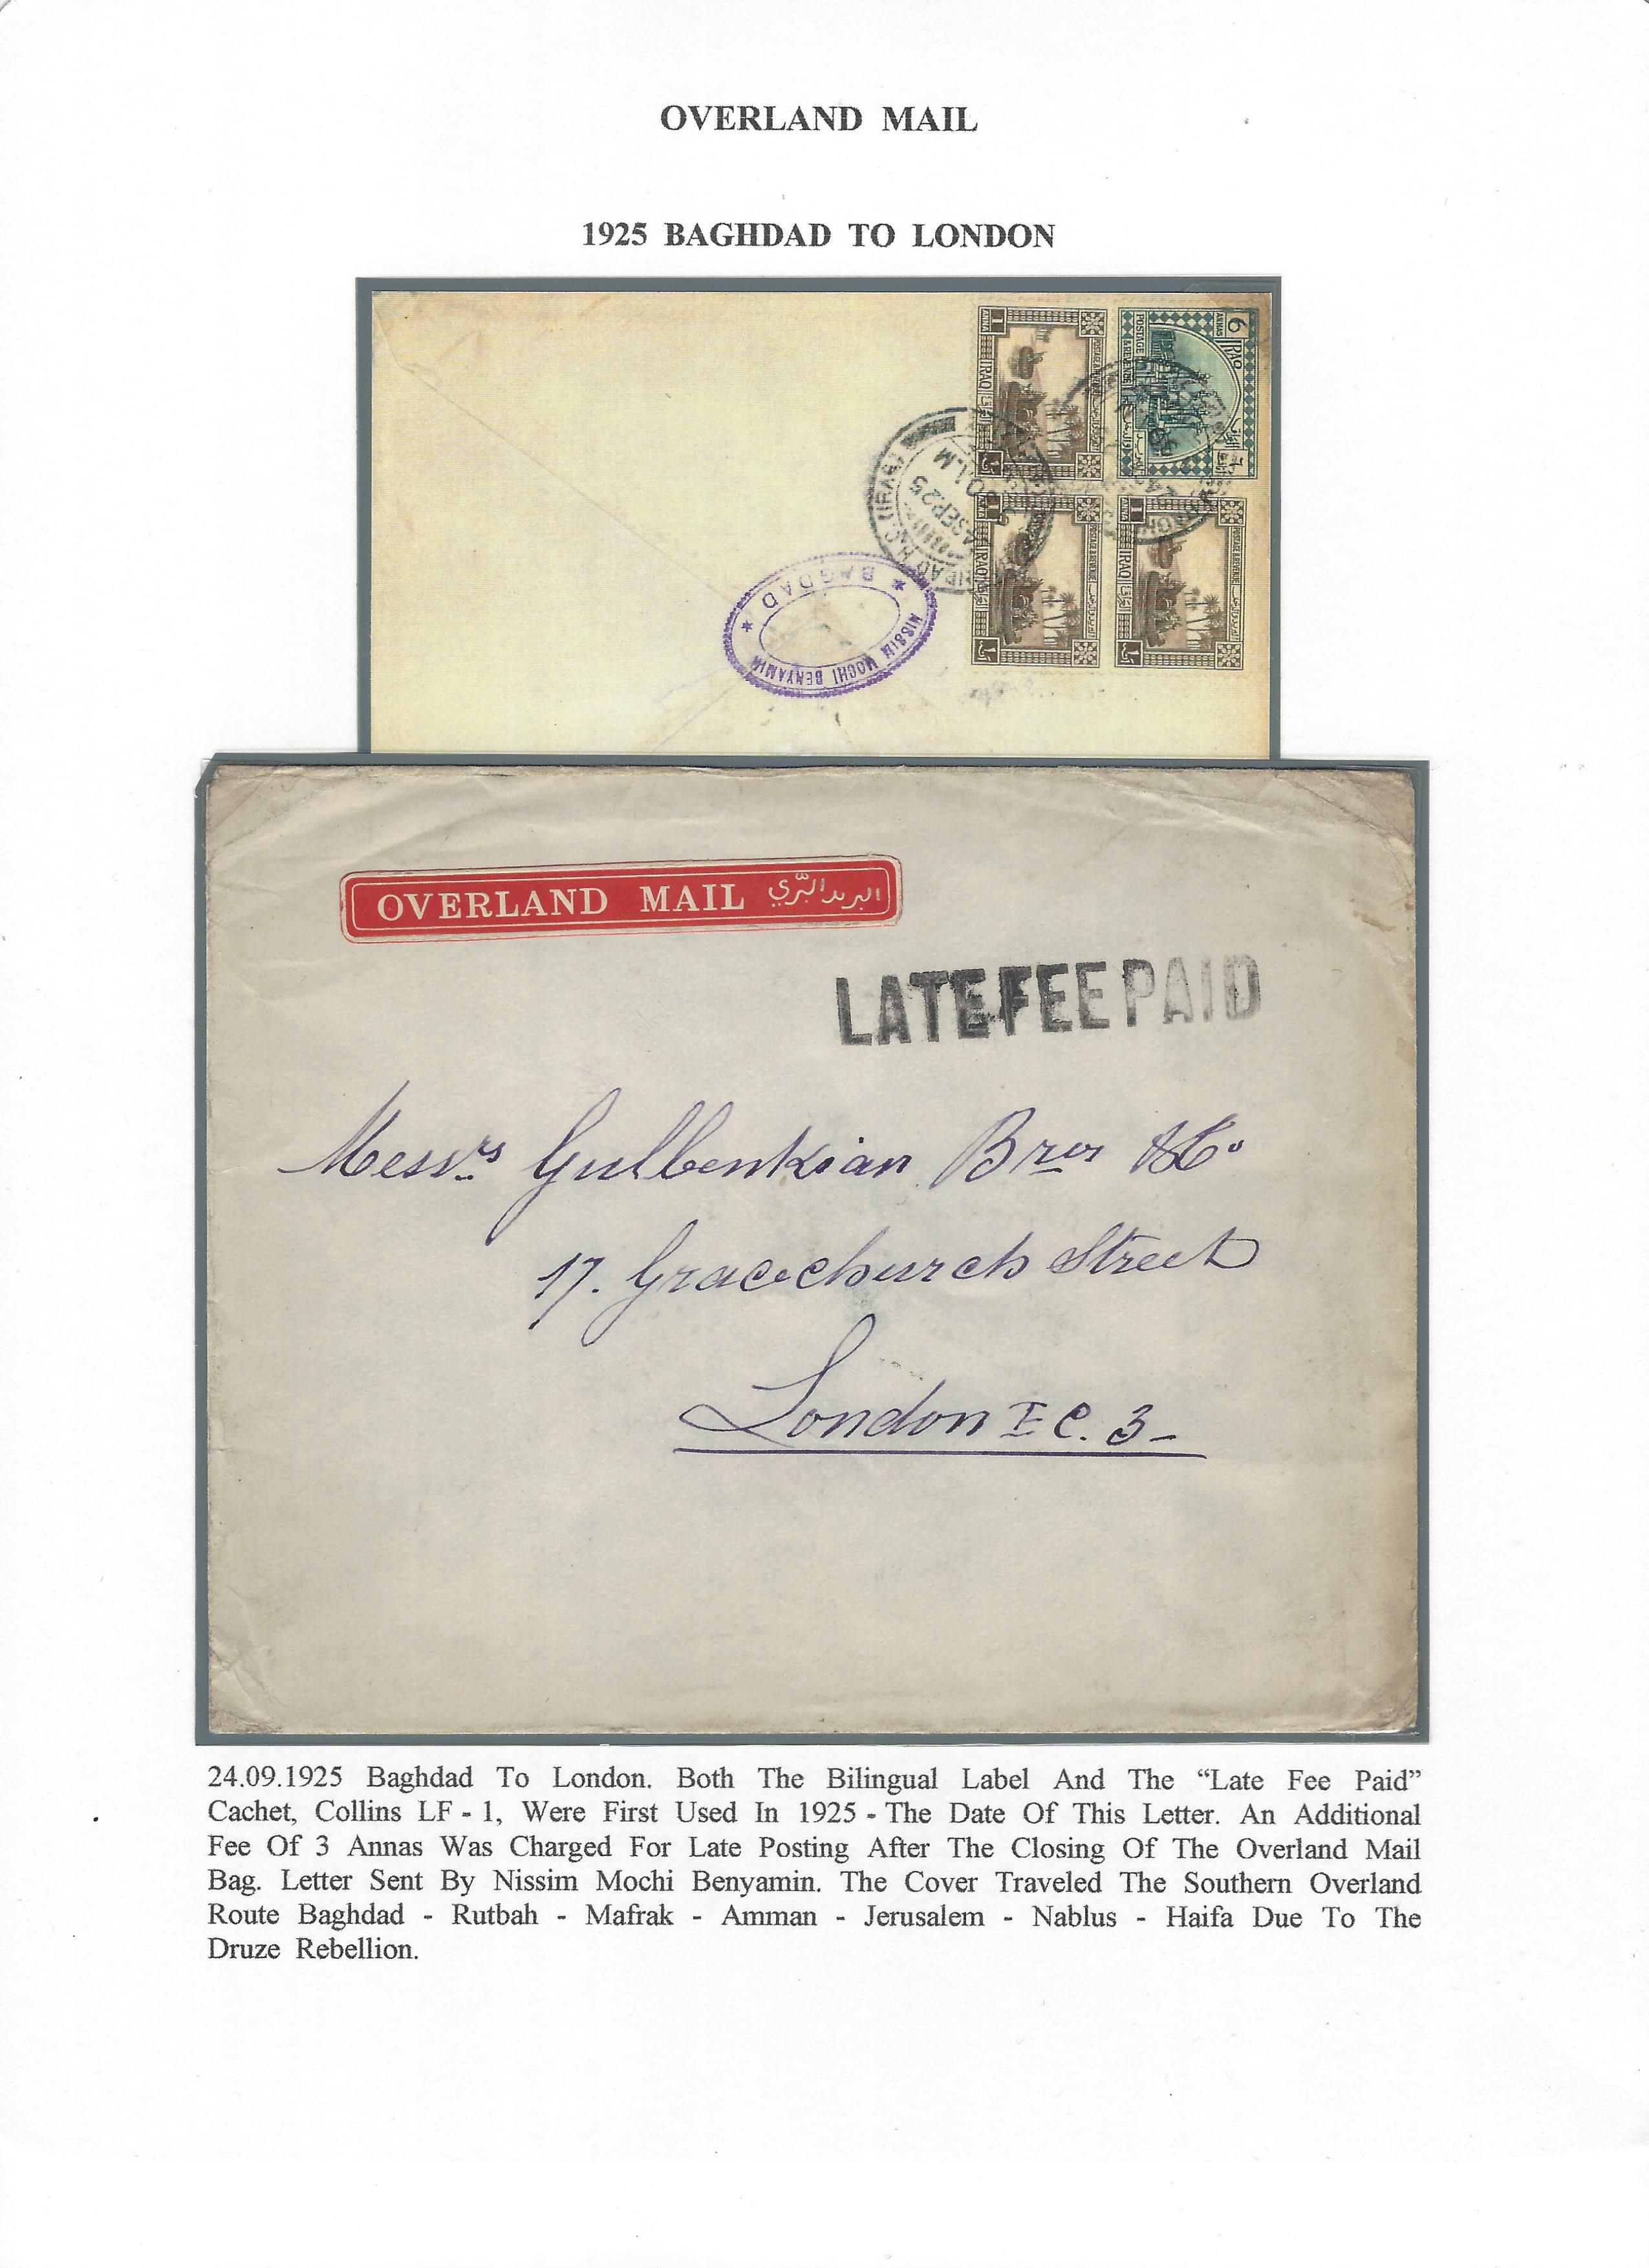 OVERLAND MAIL
1925 BAGHDAD TO LONDON
1 ANNA
IRAQ
POSTAGE & REVENUE
6 ANNAS
IRAQ
POSTAGE & REVENUE
1 ANNA
IRAQ
POSTAGE & REVENUE
1 ANNA
IRAQ
POSTAGE & REVENUE
(IRAQ)
SEP 25
BAGDAD
NISSIM MOCHI BENYAMIN
OVERLAND MAIL البريد البرّي
LATE FEE PAID
Messrs Gulbenkian Bros & Co
17. Gracechurch Street
London E C. 3 -
24.09.1925 Baghdad To London. Both The Bilingual Label And The “Late Fee Paid”
Cachet, Collins LF - 1, Were First Used In 1925 - The Date Of This Letter. An Additional
Fee Of 3 Annas Was Charged For Late Posting After The Closing Of The Overland Mail
Bag. Letter Sent By Nissim Mochi Benyamin. The Cover Traveled The Southern Overland
Route Baghdad - Rutbah - Mafrak - Amman - Jerusalem - Nablus - Haifa Due To The
Druze Rebellion.